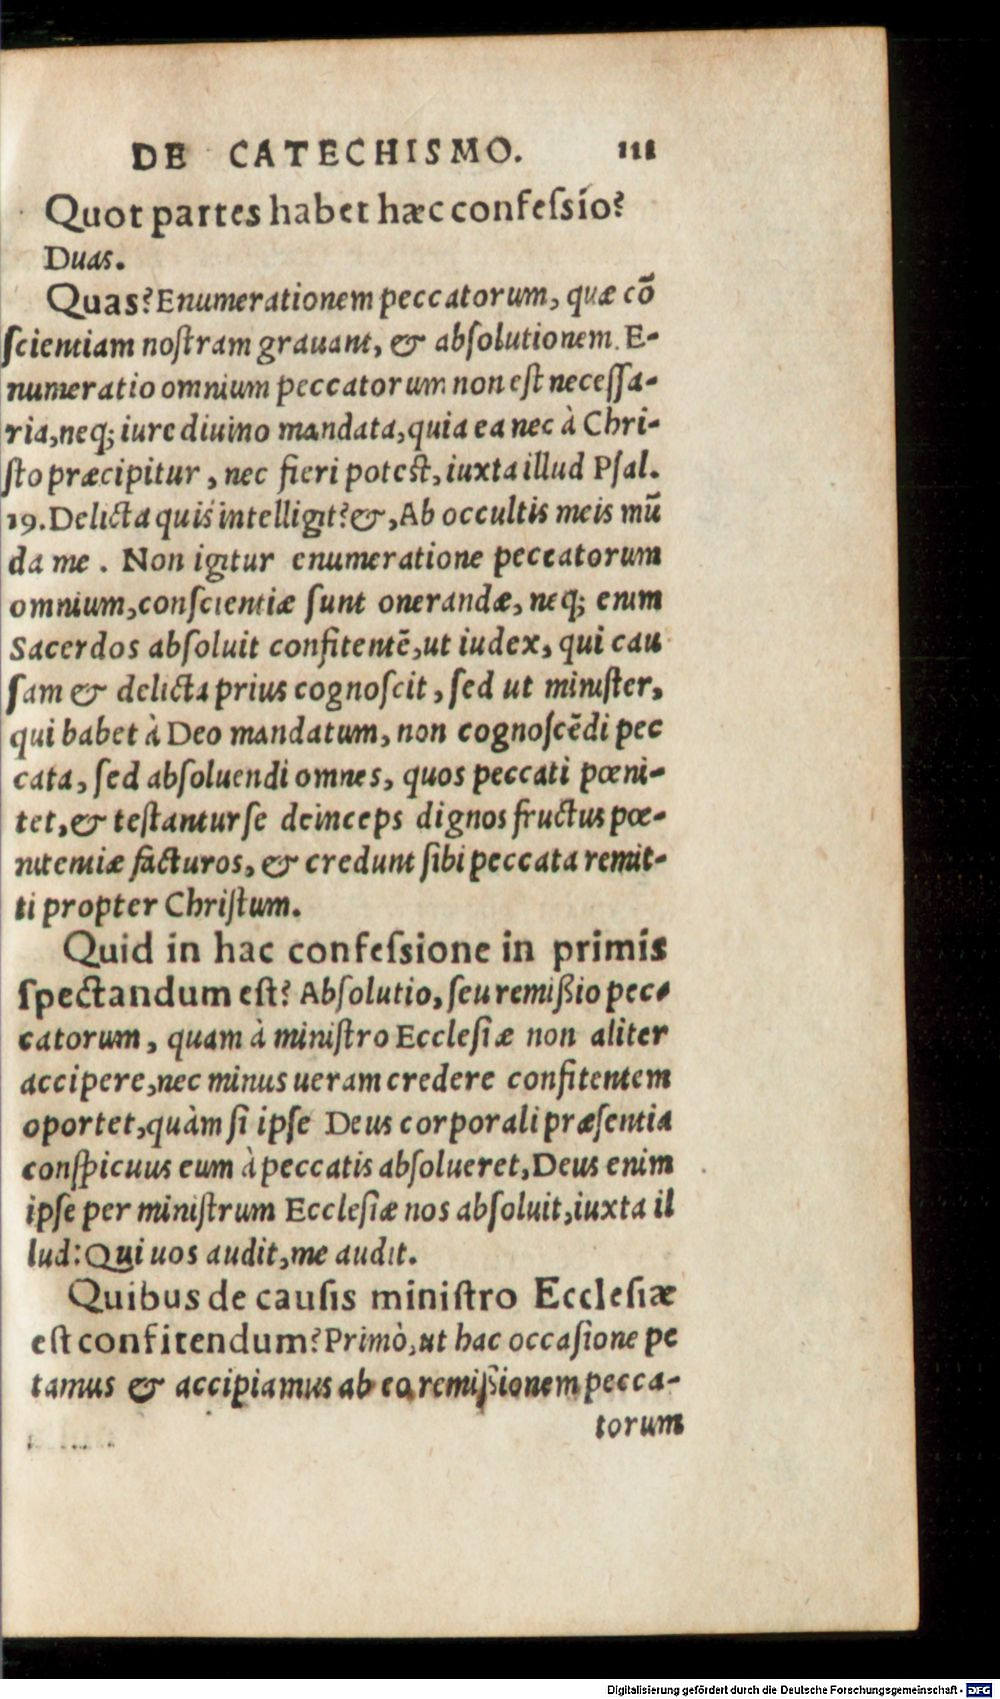 DE CATECHISMO. 111
Quot partes habet hæc confeſsio?
Duas.
Quas? Enumerationem peccatorum, quæ cō
ſcientiam noſtram grauant, & abſolutionem. E-
numeratio omnium peccatorum non eſt neceſſa-
ria, neq; iure diuino mandata, quia ea nec à Chri-
ſto præcipitur, nec fieri poteſt, iuxta illud Pſal.
19. Delicta quis intelligit? &, Ab occultis meis mū
da me. Non igitur enumeratione peccatorum
omnium, conſcientiæ ſunt onerandæ, neq; enim
Sacerdos abſoluit confitentē, ut iudex, qui cau
ſam & delicta prius cognoſcit, ſed ut miniſter,
qui habet à Deo mandatum, non cognoſcēdi pec
cata, ſed abſoluendi omnes, quos peccati pœni-
tet, & teſtantur ſe deinceps dignos fructus pœ-
nitentiæ facturos, & credunt ſibi peccata remit-
ti propter Chriſtum.
Quid in hac confeſsione in primis
ſpectandum eſt? Abſolutio, ſeu remißio pec-
catorum, quam à miniſtro Eccleſiæ non aliter
accipere, nec minus ueram credere confitentem
oportet, quàm ſi ipſe Deus corporali præſentia
conſpicuus eum à peccatis abſolueret, Deus enim
ipſe per miniſtrum Eccleſiæ nos abſoluit, iuxta il
lud: Qui uos audit, me audit.
Quibus de cauſis miniſtro Eccleſiæ
eſt confitendum? Primò, ut hac occaſione pe
tamus & accipiamus ab eo remißionem pecca-
torum
Digitalisierung gefördert durch die Deutsche Forschungsgemeinschaft - DFG